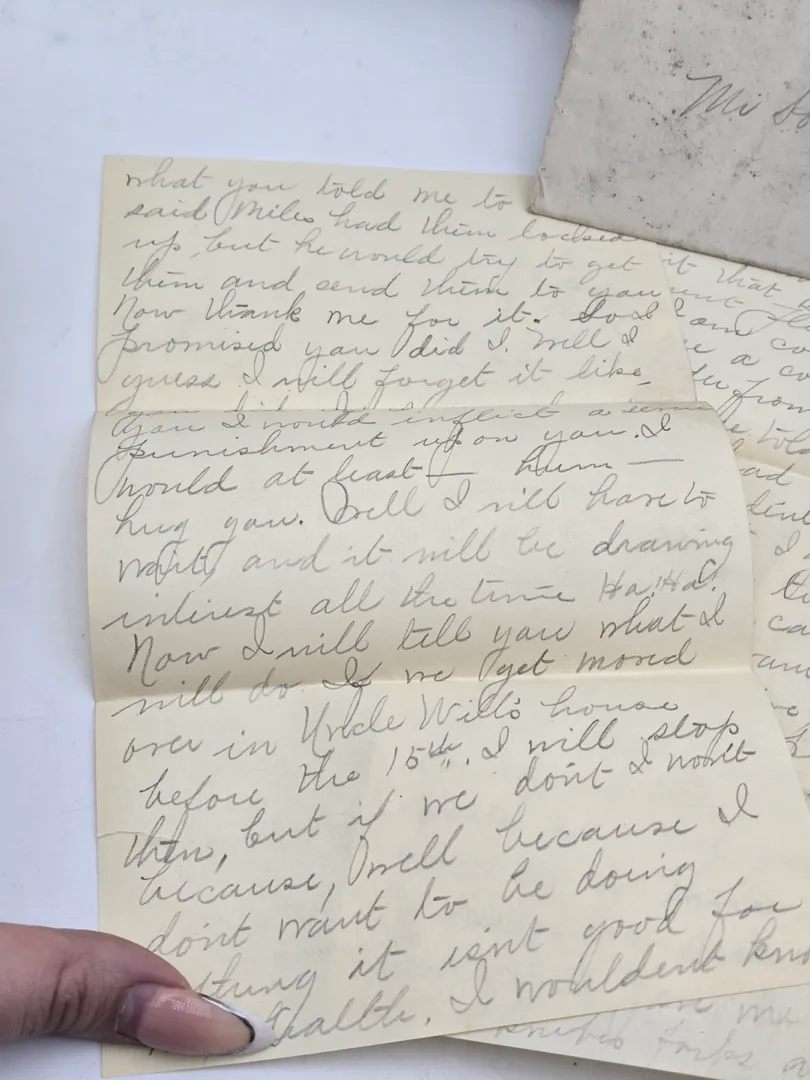 Mi
what you told me to
said Miles had them locked
up, but he would try to get
them and send them to you
Now thank me for it.
promised you did I. Well I
guess I will forget it like
you I would inflict a
punishment upon you. I
would at least — hum —
hug you. Well I will have to
wait, and it will be drawing
interest all the time Ha! Ha!
Now I will tell you what I
will do. If we get moved
over in Uncle Will's house
before the 15th. I will stop
then, but if we dont I wont
because, well because I
dont want to be doing
thing it isnt good for
health. I wouldent kno
it that
am co
e a co
from
told
ad
I
ca
me
knives forks a